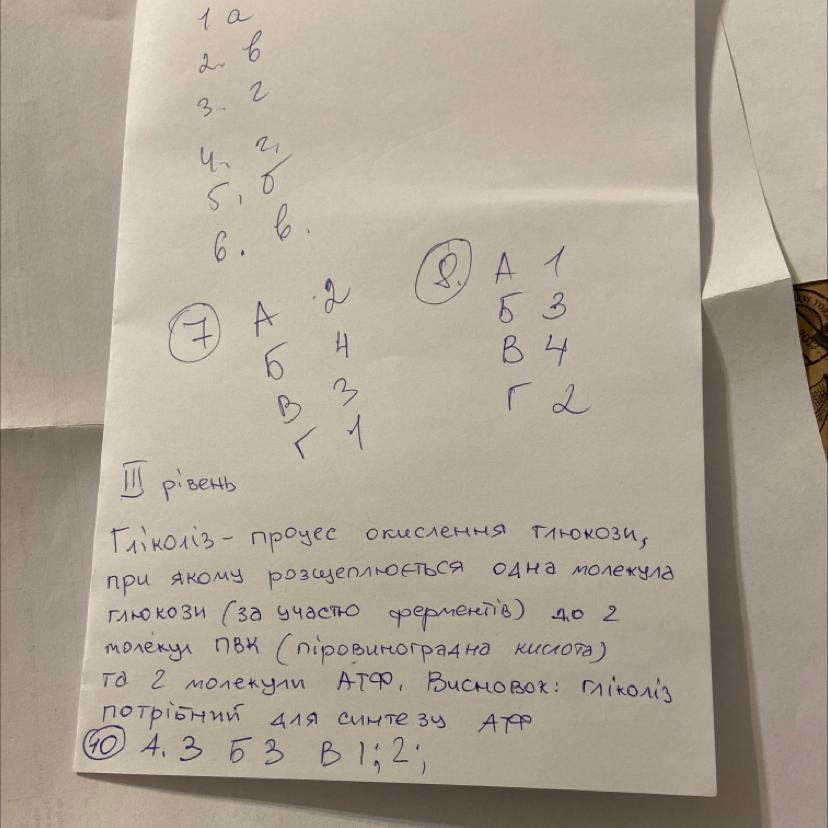 1 а
2. в
3. г
4. г.
5. б
6. в.
7 А 2
Б 4
В 3
Г 1
8. А 1
Б 3
В 4
Г 2
III рівень
Гліколіз - процес окислення глюкози,
при якому розщеплюється одна молекула
глюкози (за участю ферментів) до 2
молекул ПВК (піровиноградна кислота)
та 2 молекули АТФ. Висновок: гліколіз
потрібний для синтезу АТФ
10 А. 3 Б 3 В 1; 2;